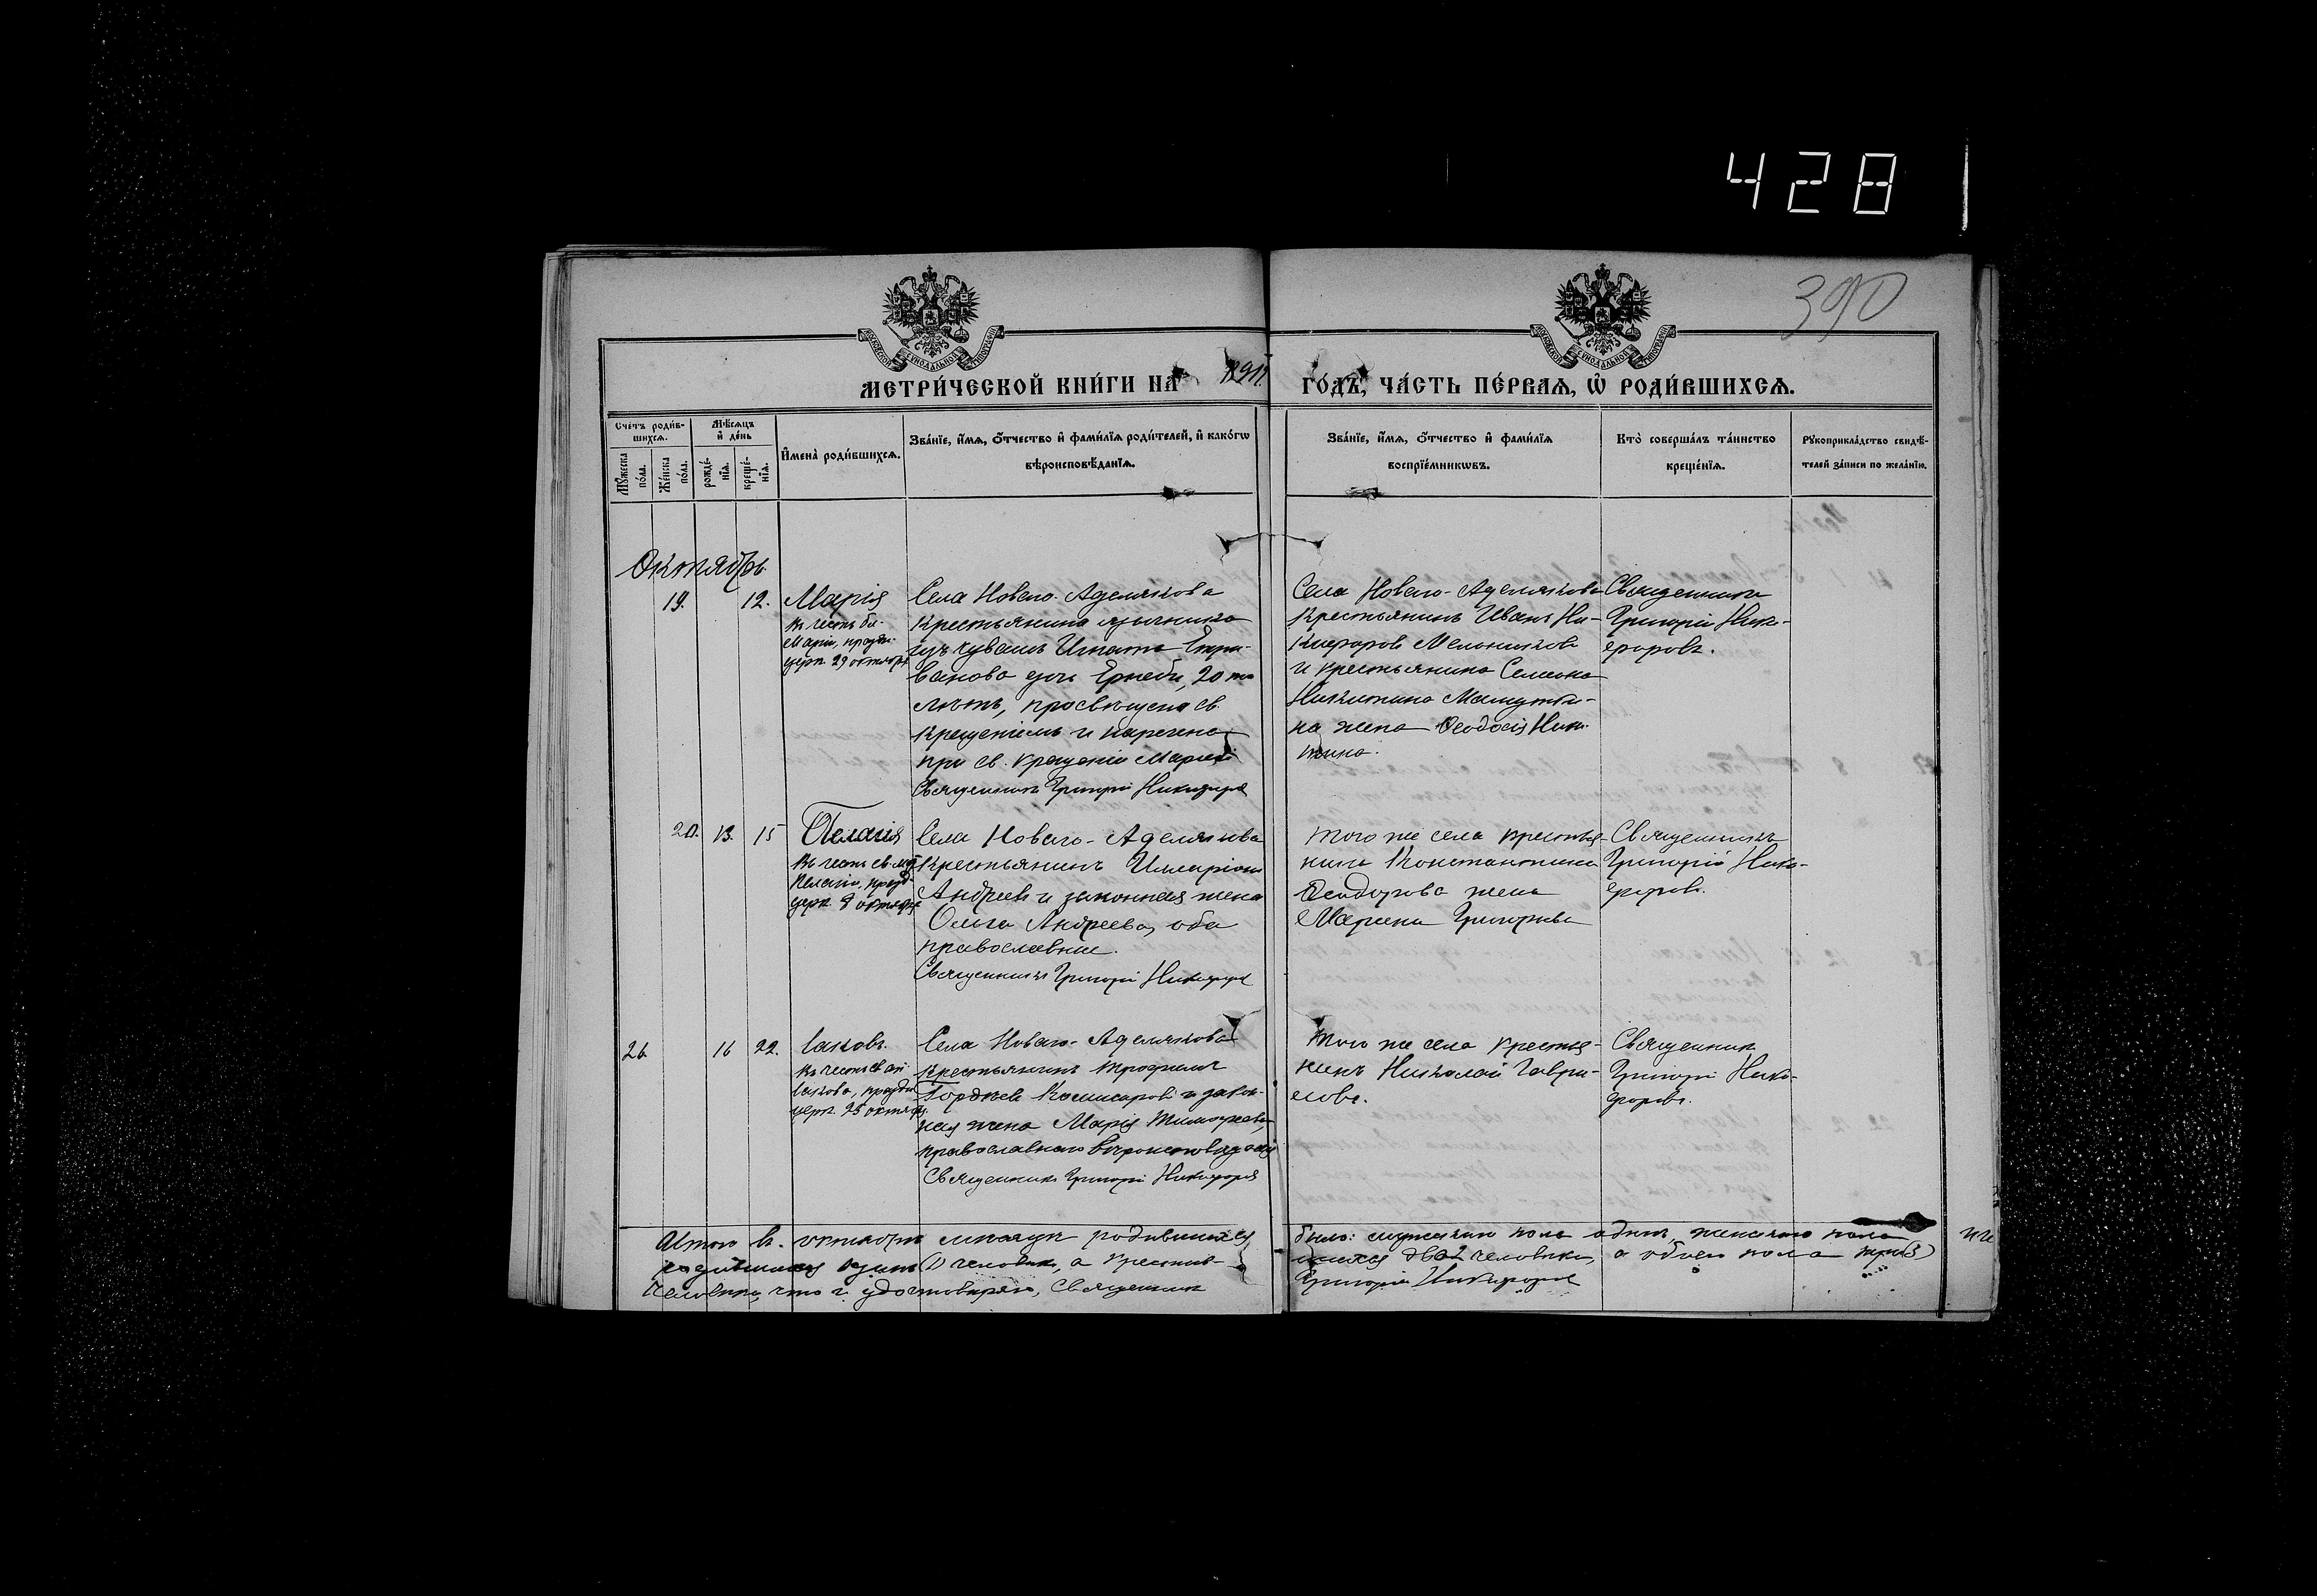 428
390
МОСКОВСКОЙ СѴНОДАЛЬНОЙ ТИПОГРАФІИ
МОСКОВСКОЙ СѴНОДАЛЬНОЙ ТИПОГРАФІИ
МЕТРИ́ЧЕСКОЙ КНИ́ГИ НА
ГО́ДЪ, ЧА́СТЬ ПЕ́РВАѦ, Ѡ҆ РОДИ́ВШИХСѦ.
Сче́тъ роди́в-
шихсѧ.
Мѣ́сѧцъ
и҆ де́нь
Мꙋ́жеска
по́ла.
Же́нска
по́ла.
рожде́-
нїѧ.
креще́-
нїѧ.
И҆мена̀ роди́вшихсѧ.
Зва́нїе, и҆́мѧ, ѻ҆́тчество и҆ фами́лїѧ роди́телей, и҆ како́гѡ
вѣроисповѣ́данїѧ.
Зва́нїе, и҆́мѧ, ѻ҆́тчество и҆ фами́лїѧ
воспрїе́мникѡвъ.
Кто̀ соверша́лъ та́инство
креще́нїѧ.
Рꙋкоприкла́дство свидѣ́-
телей за́писи по жела́нїю.
Октябрь.
19. 12.
Марія
Въ честь бл.
Маріи, праздн.
церк. 29 октября
Села Новаго-Аделякова
крестьянина язычника
изъ чувашъ Игната
ванова дочь 20 ти
лѣтъ, просвѣщена св.
крещеніемъ и наречена
при св. крещеніи Маріей
Священникъ Григорій Никифоровъ
Села Новаго-Аделякова
крестьянинъ Иванъ Ни-
кифоровъ Мельниковъ
и крестьянина Семена
Никитина
на жена Ѳеодосія Ники-
тина.
Священникъ
Григорій Ники-
форовъ.
20. 13. 15
Пелагія
Въ честь св. муч.
Пелагіи, празд.
церк. 8 октября
Села Новаго-Аделякова
крестьянинъ Илларіонъ
Андреевъ и законная жена
Ольга Андреева, оба
православные.
Священникъ Григорій Никифоровъ
Того же села крестья-
нина Константина
Ѳеодорова жена
Григорьева
Священникъ
Григорій Ники-
форовъ.
26. 16 22.
Іаковъ.
Въ честь св. ап.
Іакова, праздн.
церк. 23 октября.
Села Новаго-Аделякова
крестьянинъ Трофимъ
Гордѣевъ Комисаровъ и закон-
ная жена Марія Тимофеева,
православнаго вѣроисповѣданія
Священникъ Григорій Никифоровъ
Того же села крестья-
нинъ Николай Гаври-
ловъ.
Священникъ
Григорій Ники-
форовъ.
Итого въ октябрѣ мѣсяцѣ родившихся было: мужскаго пола одинъ, женскаго пола
родившихся одинъ (1) человѣкъ, а крестив-шихся два 2 человѣка, а обоего пола три (3)
человѣка, что и удостовѣряю, Священникъ Григорій Никифоровъ